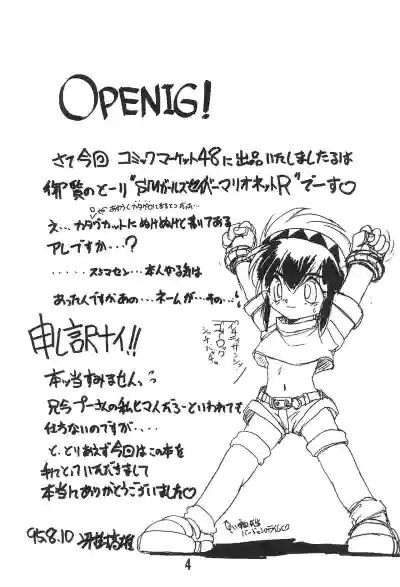 OPENIG!
さて今回 コミックマーケット48に出品いたしましたるは
御覧のとーり"SMガールズセイバーマリオネットR"でーす♡
え...カタログカットにぬけぬけと書いてある
アレですか...?
.....スミマセン...本人やる気は
あったんですがあの...ネームが...その...
申し訳ナイ!!
本ッ当すみません、
只今プーさんの私ヒマんだろーといわれても
仕方ないのですが....
と、とりあえず今回はこの本を
手にとっていただきまして
本当にありがとうございました♡
95.8.10
4